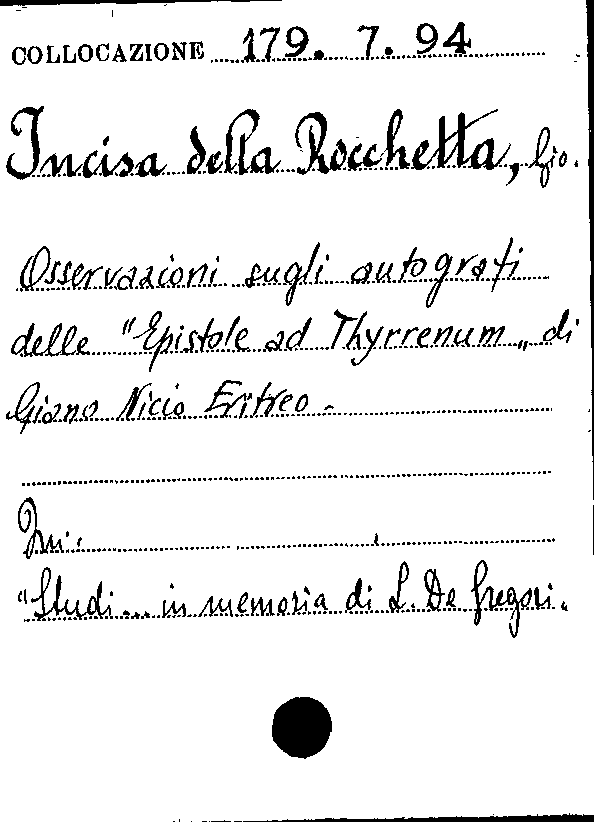 COLLOCAZIONE 179. 7. 94
Incisa della Rocchetta, Gio.
Osservazioni sugli autografi
delle "Epistole ad Thyrrenum„ di
Giano Nicio Eritreo.
In:
"Studi... in memoria di L. De Gregori.